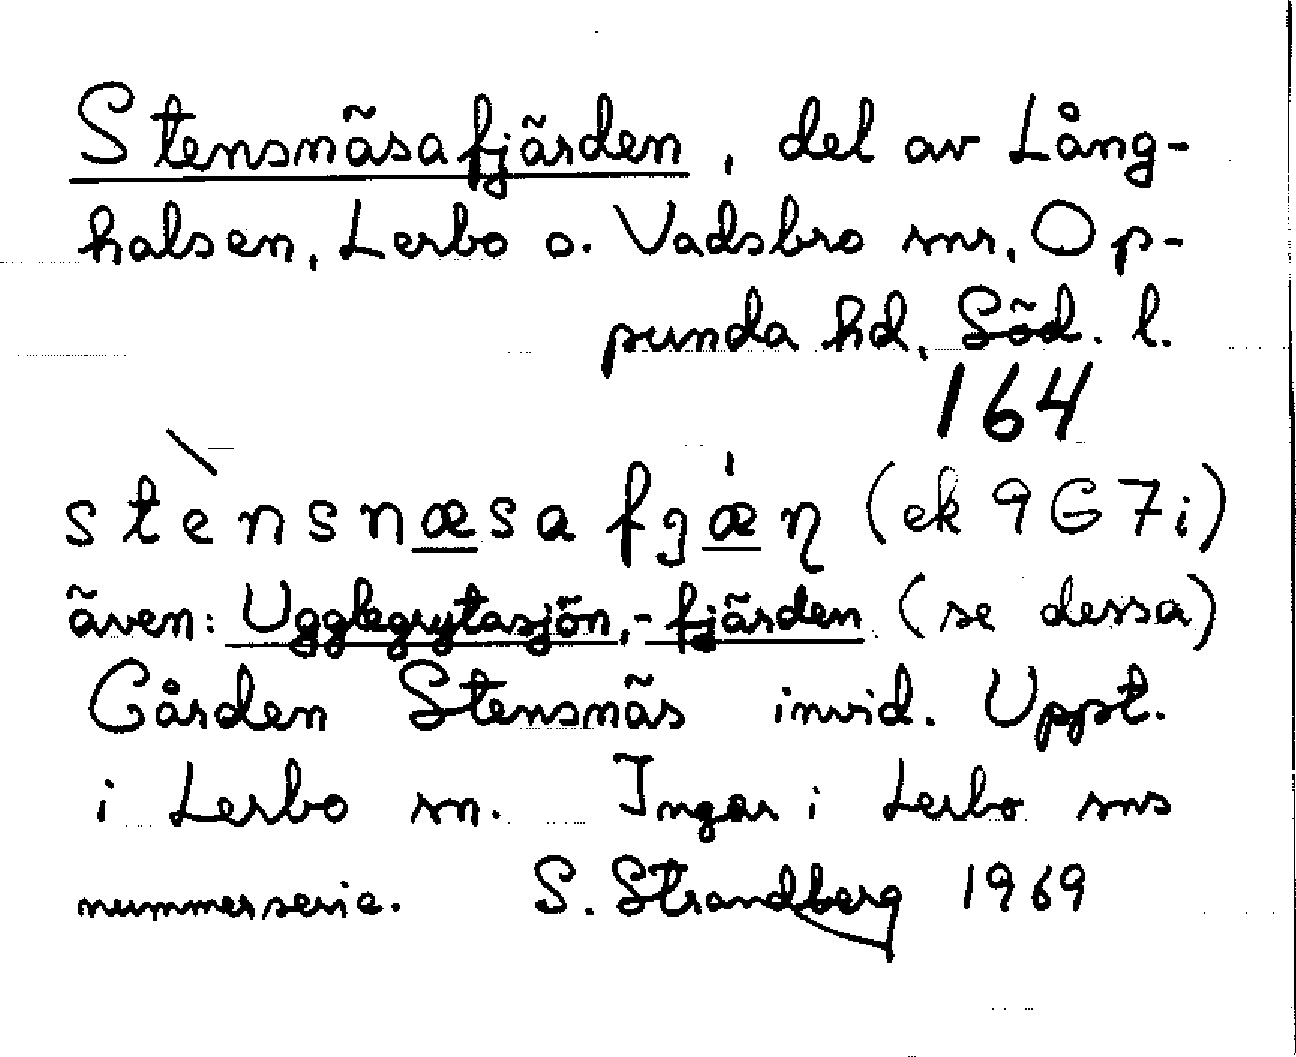 Stensnäsafjärden, del av Lång-
halsen, Lerbo o. Vadsbro snr, Op-
punda hd, Söd. l.
164
stènsnæsa fjǽɳ (ek 9G7i)
även: Ugglegrytasjön, -fjärden (se dessa)
Gården Stensnäs invid. Uppt.
i Lerbo sn. Ingår i Lerbo sns
nummerserie. S. Strandberg 1969